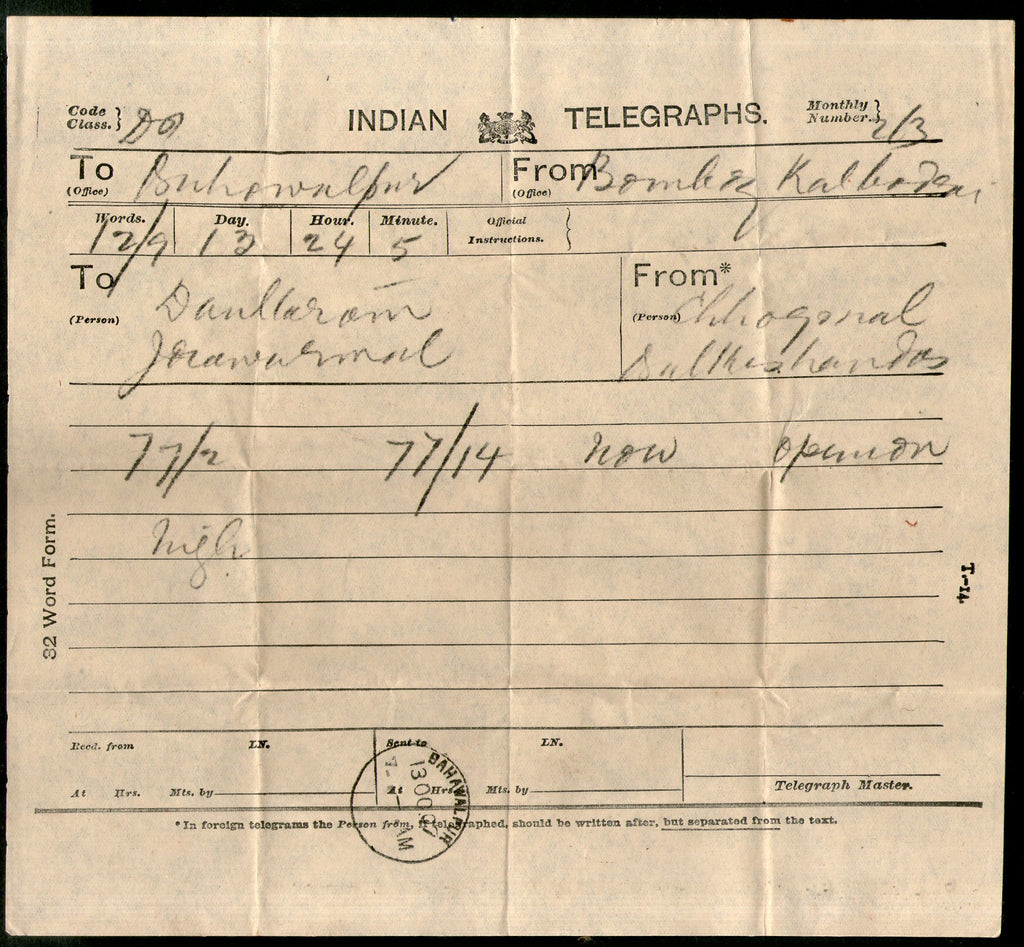 Code Class. } DO
INDIAN TELEGRAPHS.
Monthly Number. } 2/3
To (Office) Buhowalpur
From (Office) Bombay Kalbadevi
Words. Day. Hour. Minute. Official Instructions. }
12/9 13 24 5
To (Person) Daultaram
Jorawurmal
From* (Person) Chhogmal
Balkishandas
77/2 77/14 now opinion
high
32 Word Form.
T.-14.
Recd. from LN. Sent to LN.
At Hrs. Mts. by At Hrs. Mts. by
Telegraph Master.
BAHAWALPUR
13 OC 07
7- AM
*In foreign telegrams the Person from, if telegraphed, should be written after, but separated from the text.